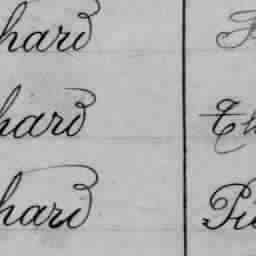 hard
hard Th
hard Pi